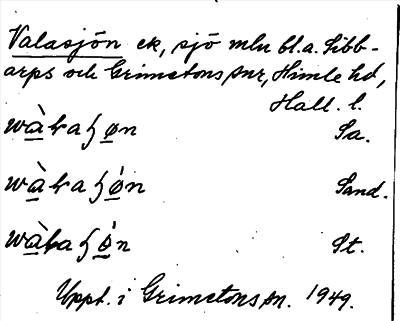 Valasjön ek, sjö mlu bl.a. Sibb-
arps och Grimetons snr, Himle hd,
Hall. l.
wàɫaʃøn Sa.
wàɫaʃǿn Sand.
wàɫaʃǿn St.
Uppt. i Grimetons sn. 1949.